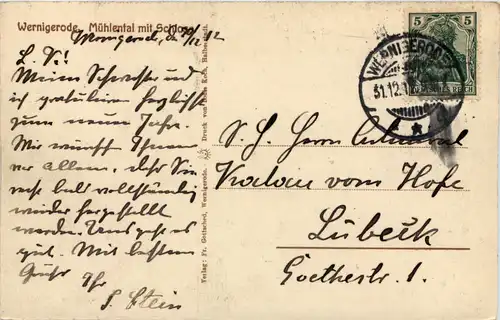 Wernigerode, Mühlental mit Schloss
Wernigerode, d. 30/12 12
L. V!
Meine Schwester und
ich gratulieren herzlichst
zum neuen Jahre.
Wir wünschen Ihnen
vor allem, daß Sie
recht bald vollständig
wieder hergestellt
werden. Uns geht es
gut. Mit besten
Gruß
Ihr
S. Stein
Verlag: Fr. Gottschel, Wernigerode. Druck von Koch, Halberstadt.
5 5
DEUTSCHES REICH
WERNIGERODE
31.12.
S. H. Herrn
Kalau vom Hofe
Lübeck
Goethestr. 1.